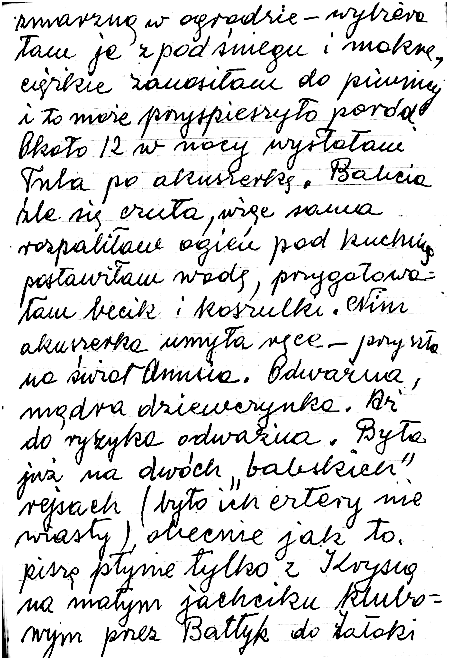 zmarzną w ogrodzie – wybiera
łam je z pod śniegu i mokre,
ciężkie zanosiłam do piwnicy
i to może przyspieszyło poród.
Około 12 w nocy wysłałam
Tula po akuszerkę. Babcia
źle się czuła, więc sama
rozpaliłam ogień pod kuchnią
postawiłam wodę, przygotowa=
łam becik i koszulki. Nim
akuszerka umyła ręce – przyszła
na świat Annusia. Odważna,
mądra dziewczynka. Aż
do ryzyka odważna. Była
już na dwóch „babskich"
rejsach (było ich cztery nie
wiasty), obecnie jak to
piszę płynie tylko z Krysią
na małym jachciku klubo=
wym przez Bałtyk do Zatoki